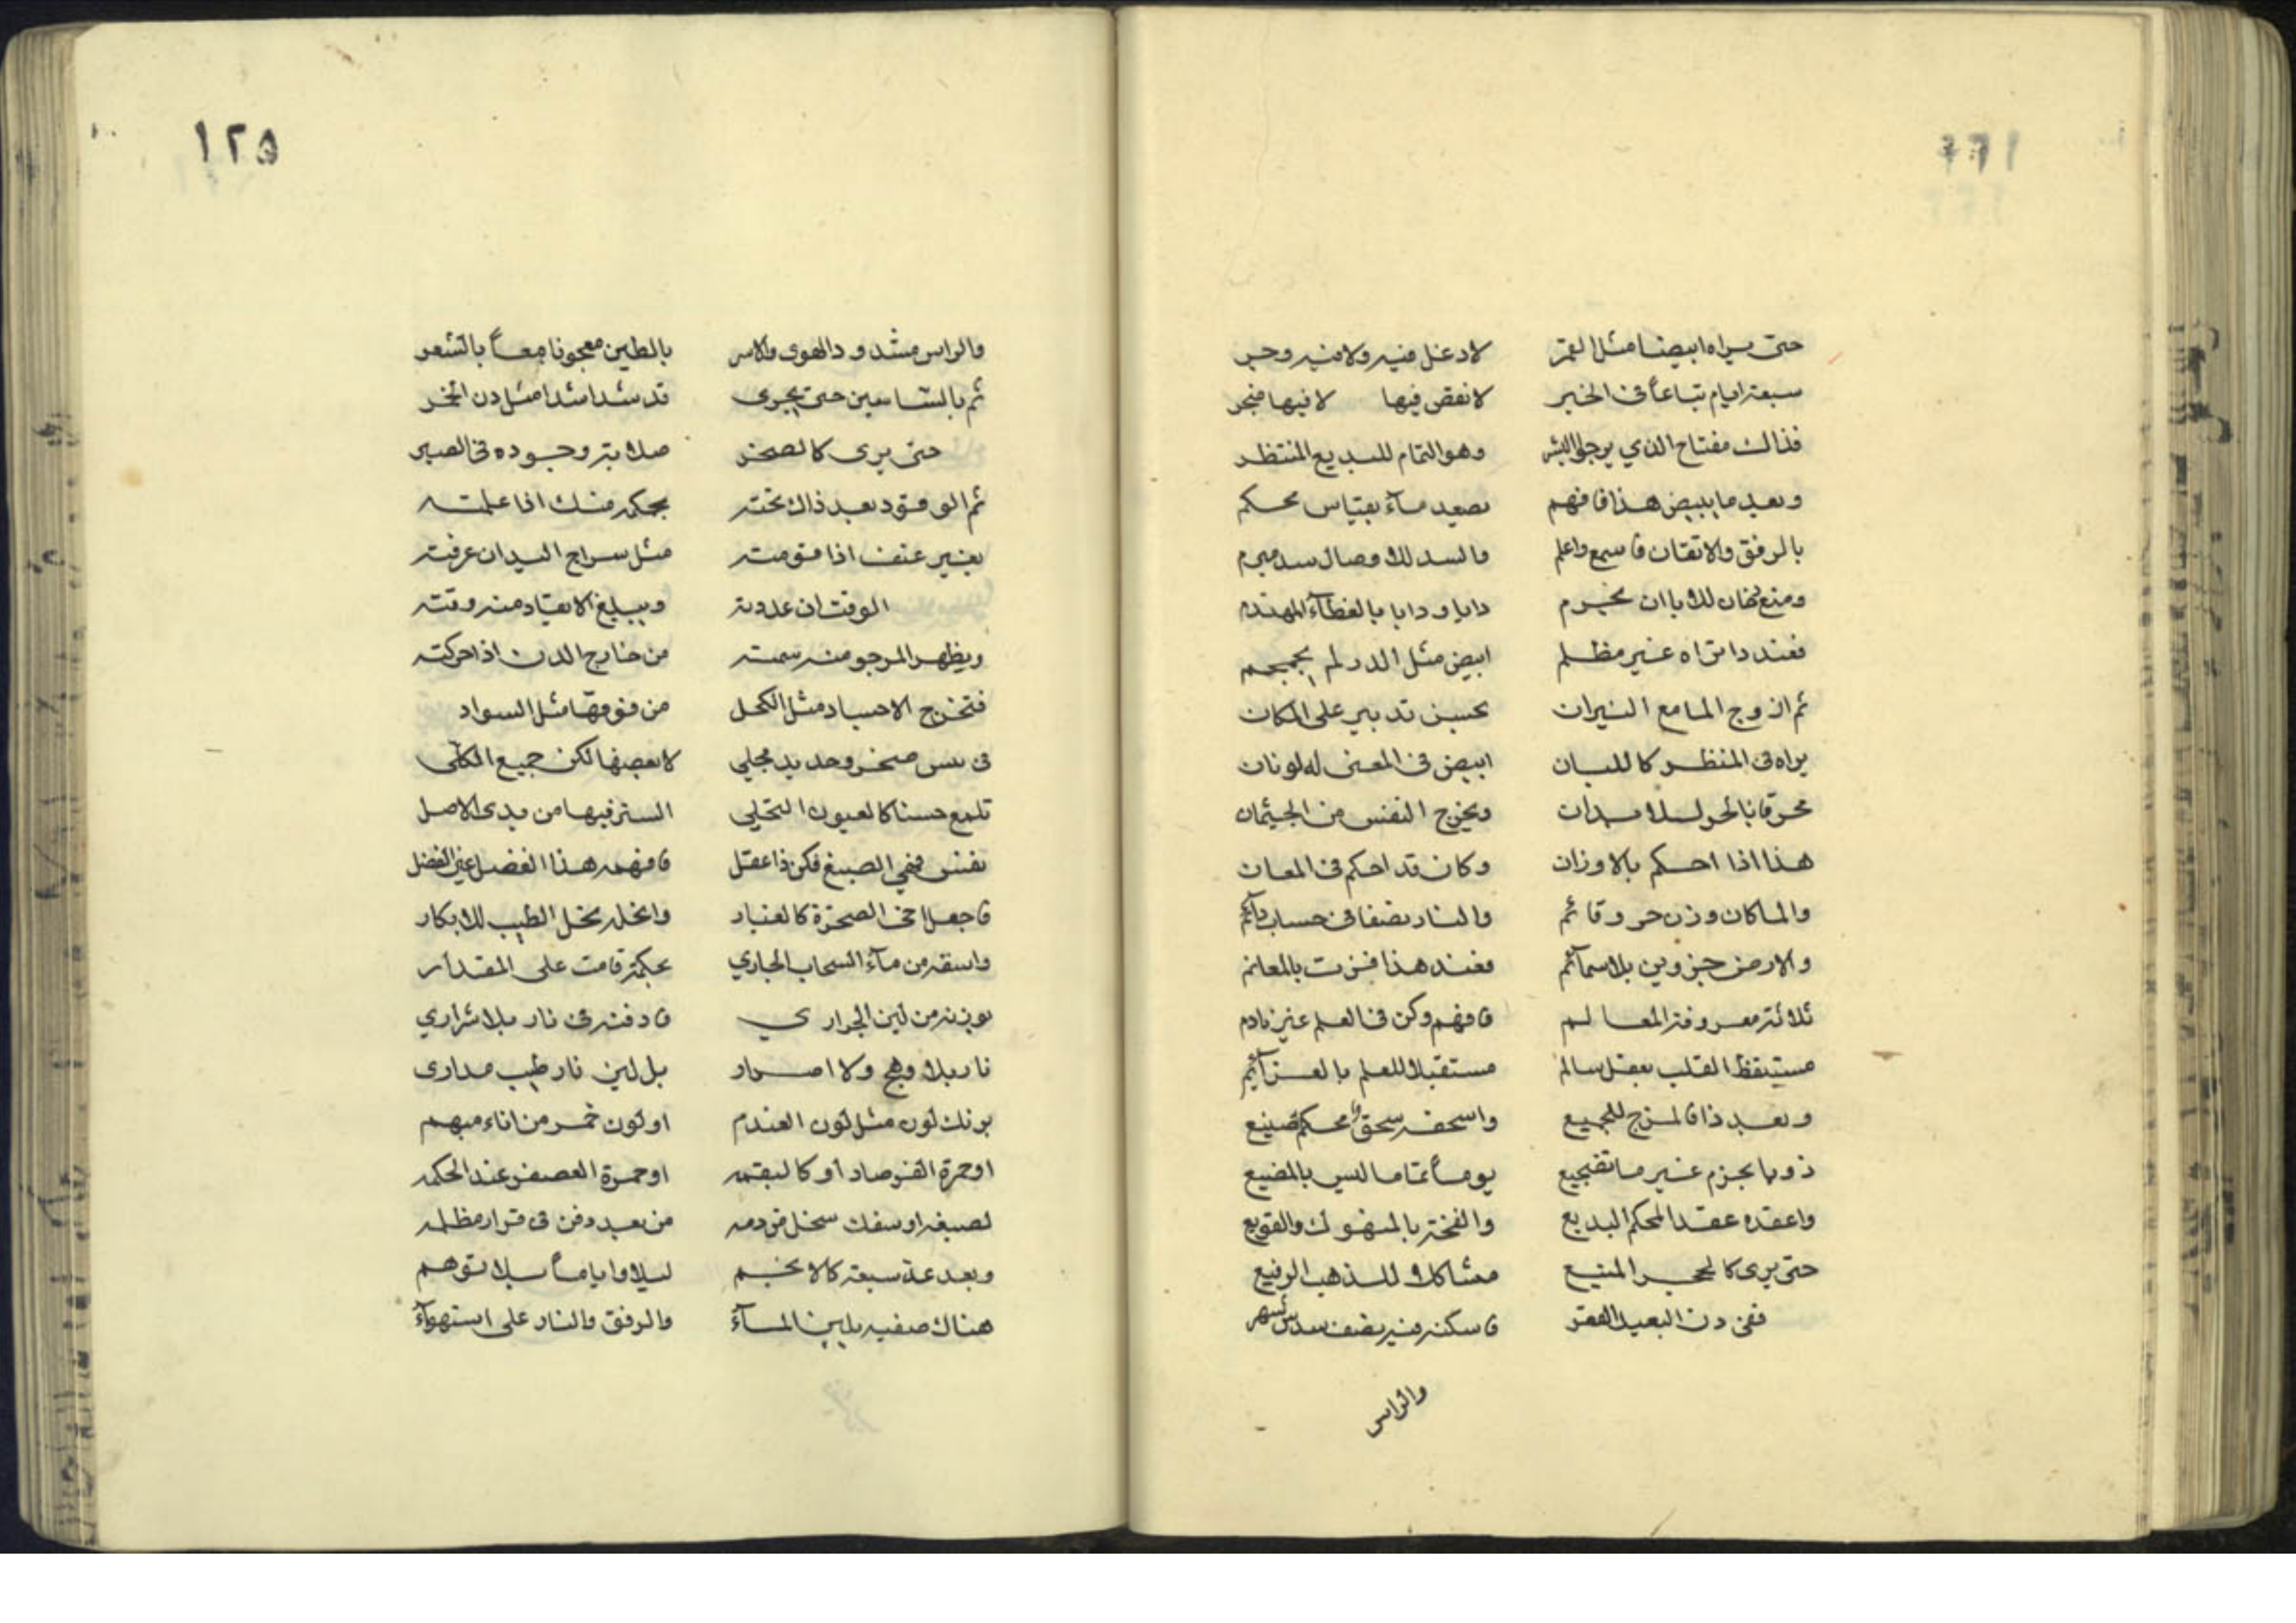 حتى يراه ابيضا مثل القمر لا دغل فيه ولا فيه وحر
سبعة ايام تباعاً فى الخبر لا نقص فيها لا فيها ضجر
فذاك مفتاح الذي يرجوا البشر وهو التمام للبديع المنتظر
وبعد ما يبيض هذا فافهم يصعد مآء بقياس محكم
بالرفق والاتقان فاسمع واعلم والسد للاوصال سد مبرم
ومنع لها باان دايا ودايا بالغطآء
فعند دا تراه غير مظلم ابيض مثل الدر لم يجمجم
ثم ازوج الما مع النيران بحسن تدبير على المكان
يراه فى المنظر كاللبان ابيض فى المعنى له لونان
محرقا بالحر ويخرج النفس من الجيثمان
هذا اذا احكم بالاوزان وكان قد احكم فى المعان
والما كان وزن حر وقائم والنار نصفا فى حساب دآئم
والارض جزوين بلا سمآئم فعند هذا فزت بالمغانم
ثلاثة معروفة المعالم فافهم وكن فى العلم غير نادم
مستيقظ القلب بعقل سالم مستقبلا للعلم بالعزآئم
وبعد ذا فالمزج للجميع واسحقه سحقا محكم صنيع
ذوبا بحزم غير ما تفجيع يوماً تماما ليس بالمضيع
واعقده عقد المحكم البديع والفخة بالمنهوك والقويع
حتى يرى كالحجر المنيع مشاكلا للذهب الرفيع
ففى دن البعيد القعر فاسكنه فيه نصف سدس شهر
والراس
١٢٥
والراس مشدود الهوى والامر بالطين معجونا معاً بالشعر
ثم بالشاسين حتى يجرى قد شد اشدا مثل دن الخمر
حتى يرى كالصخر صلابة وجوده فى الصبر
ثم الوقود بعد ذاك تحته بحكمه منك اذا علمته
بغير عنف اذا قومته مثل سراج البدان عرفته
الوقت ان عددته ويبلغ الايقاد منه وقته
ويظهر المرجو منه سمته من خارج الدن اذا حركته
فتخرج الاجساد مثل الكحل من فوقها مثل السواد
فى يبس صخر وحديد مجلي لا بعضها لكن جميع الكلى
تلمع حسنا كالعيون النحلي السر فيها من بدى الاصل
نفس فهي الصبغ فكن ذا عقل فافهمه هذا الفضل عين الفضل
فاجعل اخى الصخرة كالغبار وانخله نخل الطيب للابكار
واسقه من مآء السحاب الجاري بحكمة قامت على المقدار
بوزنه من لين الجراري فادفنه فى نار بلا شراري
نار بلا وهج ولا اصرار بل لين نار طب مدارى
يرنك لون مثل لون العندم او لون خمر من اناء مبهم
او حمرة الفرصاد او كالبقمه او حمرة العصفر عند الحكمه
لصبغه او سفك سخل من دمه من بعد دفن فى قرار مظلمه
وبعد عد سبعة كالانجم ليلا واياماً بلا توهم
هناك صفيه بلين المآء والرفق والنار على استهوآء